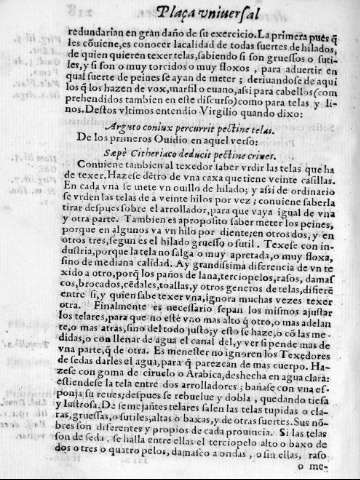 Plaça vniuersal
redundarian en gran daño de su exercicio. La primera pues q̃
les cõuiene, es conocer la calidad de todas suertes de hilados,
de quien quieren texer telas, sabiendo si son gruessos o suti-
les, y si son o muy torcidos o muy floxos, para aduertir en
qual suerte de peines se ayan de meter; deriuandose de aqui
los q̃ los hazen de vox, marfil o euano, asi para cabellos (com
prehendidos tambien en este discurso) como para telas y li-
nos. Destos vltimos entendio Virgilio quando dixo:
Arguto coniux percurrit pectine telas.
De los primeros Ouidio en aquel verso:
Sæpè Cithæriaco deducit pectine crines.
Contiene tambien al texedor saber vrdir las telas que ha
de texer. Hazese dẽtro de vna caxa que tiene veinte casillas.
En cada vna se mete vn ouillo de hilado; y asi de ordinario
se vrden las telas de a veinte hilos por vez; conuiene saberla
tirar despues sobre el arrollador, para que vaya igual de vna
y otra parte. Tambien es aproposito saber meter los peines,
porque en algunos va vn hilo por diente; en otros dos, y en
otros tres, segun es el hilado gruesso o sutil. Texese con in-
dustria, porque la tela no salga o muy apretada, o muy floxa,
sino de mediana calidad. Ay grandissima diferencia de vn te
xido a otro, porq̃ los paños de lana, terciopelos, rasos, damas
cos, brocados, cẽdales, toallas, y otros generos de telas, difierẽ
entre si, y quien sabe texer vna, ignora muchas vezes texer
otra. Finalmente es necessario sepan los mismos ajustar
los telares, para que no estè vno mas alto q̃ otro, o mas adelan
te, o mas atras, sino del todo justo; y esto se haze, o cõ las me-
didas, o con llenar de agua el canal del, y ver si pende mas de
vna parte, q̃ de otra. Es menester no ignoren los Texedores
de sedas darles el agua, para q̃ parezcan de mas cuerpo. Ha-
zese con goma de ciruelo o Arabica, deshecha en agua clara:
estiendese la tela entre dos arrolladores; bañase con vna es-
ponja su reues; despues se rebuelue y dobla, quedando tiesa
y lustrosa. De semejantes telares salen las telas tupidas o cla-
ras, gruessas, o sutiles, altas o baxas, y de otras suertes. Sus nõ-
bres son diferentes y propios de cada prouincia. Si las telas
son de seda, se halla entre ellas el terciopelo alto o baxo de
dos o tres o quatro pelos, damasco a ondas, o sin ellas, raso
o me-